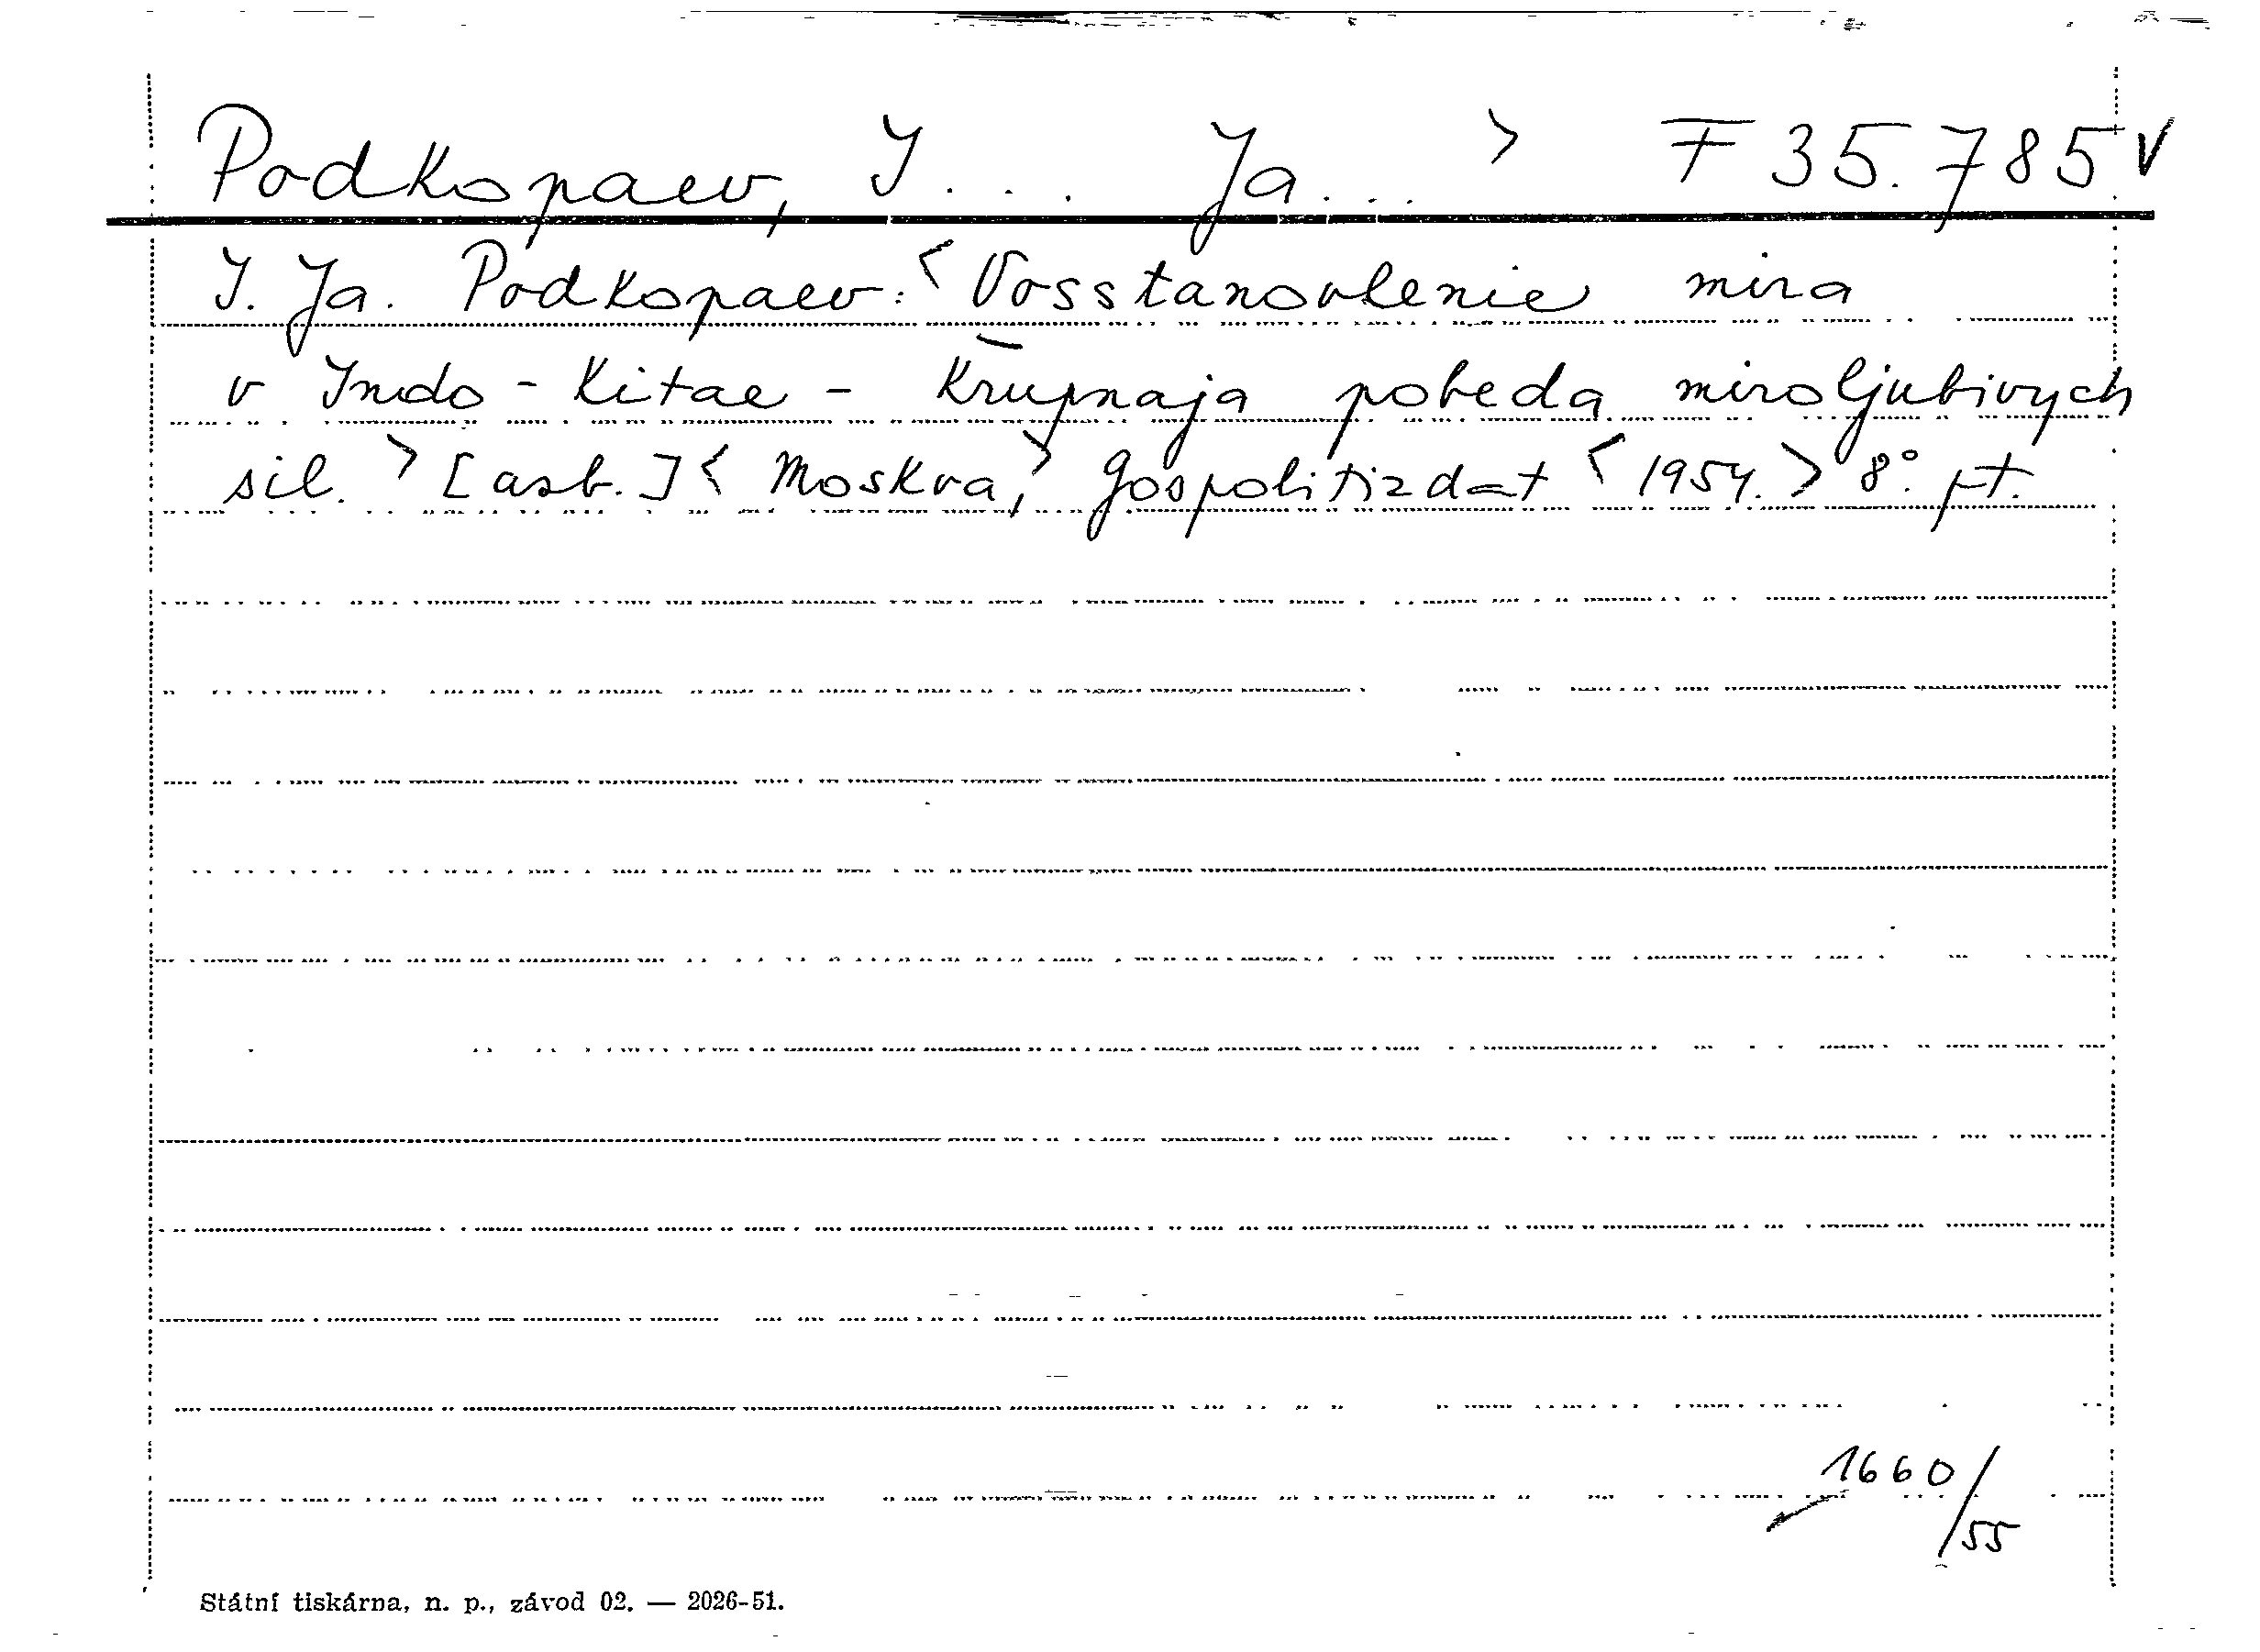 Podkopaev, I... Ja...> F 35.785 V
I. Ja. Podkopaev: <Vosstanovlenie mira
v Indo-Kitae - Krupnaja pobeda miroljubivych
sil.> [azb.] <Moskva,> Gospolitizdat <1954.> 8°. pt.
1660/55
Státní tiskárna, n. p., závod 02. — 2026-51.